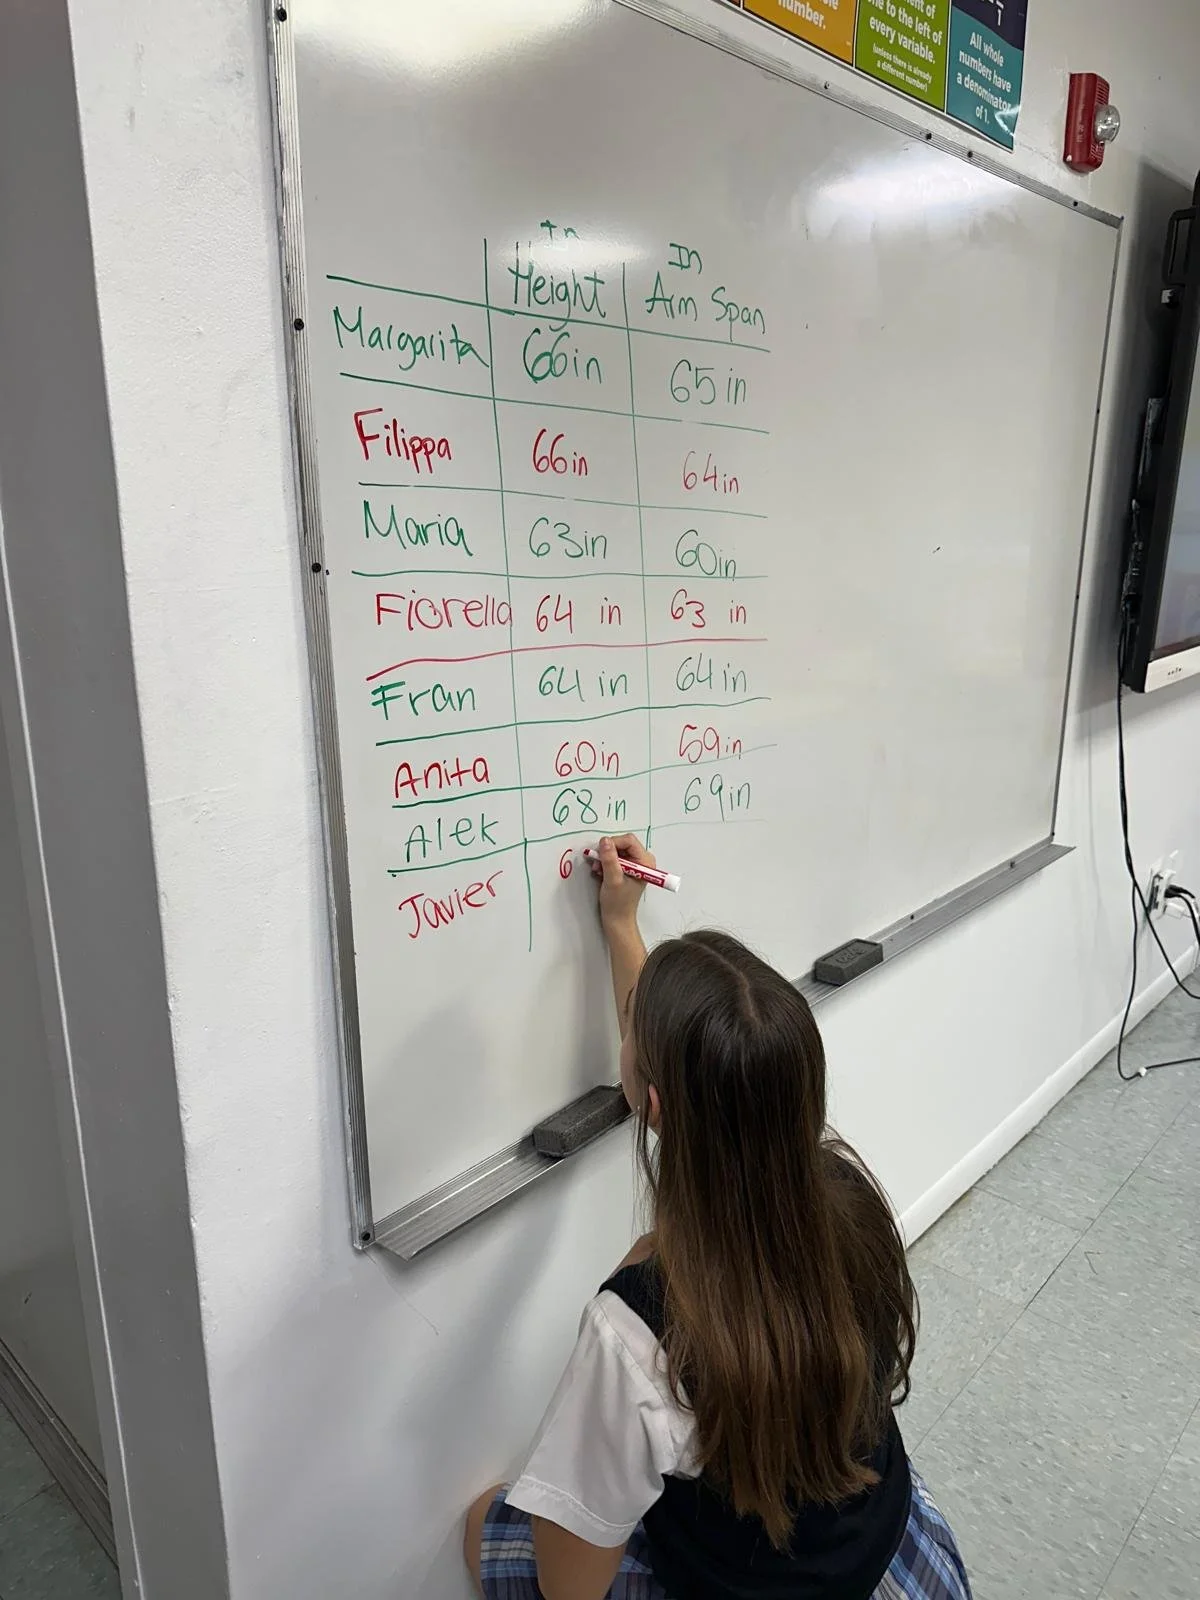 number.
to the left of
every variable.
(unless there is already
a different number)
1
All whole
numbers have
a denominator
of 1.
In In
Height Arm Span
Margarita 66in 65 in
Filippa 66in 64in
Maria 63in 60in
Fiorella 64 in 63 in
Fran 64 in 64 in
Anita 60in 59in
Alek 68 in 69in
Javier 6